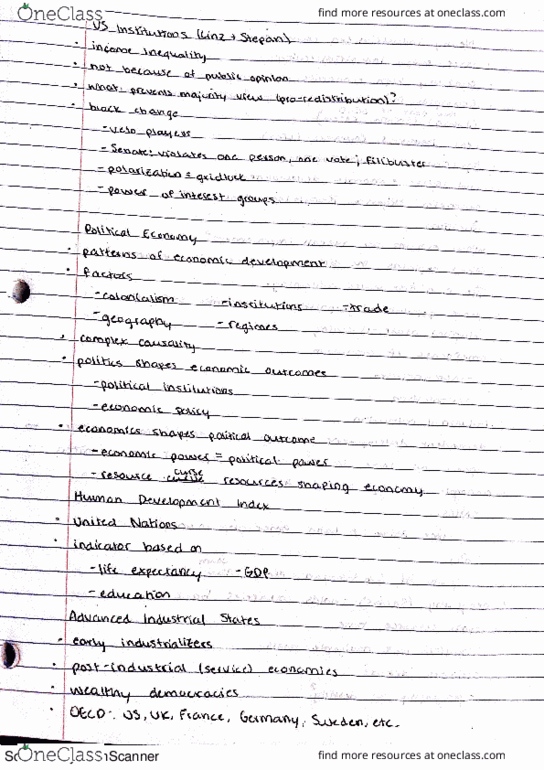 OneClass
find more resources at oneclass.com
US Institutions (Linz + Stepan)
· income inequality
· not because of public opinion
· what prevents majority view (pro-redistribution)?
· block change
- veto players
- Senate: violates one person, one vote; filibuster
- polarization = gridlock
- power of interest groups
Political Economy
· patterns of economic development
· factors
- colonialism - institutions - trade
- geography - regimes
· complex causality
· politics shapes economic outcomes
- political institutions
- economic policy
· economics shapes political outcome
- economic power = political power
- resource curse resources shaping economy
Human Development Index
· United Nations
· indicator based on
- life expectancy - GDP
- education
Advanced Industrial States
· early industrializers
· post-industrial (service) economies
· wealthy democracies
· OECD: US, UK, France, Germany, Sweden, etc.
OneClass
Scanner
find more resources at oneclass.com